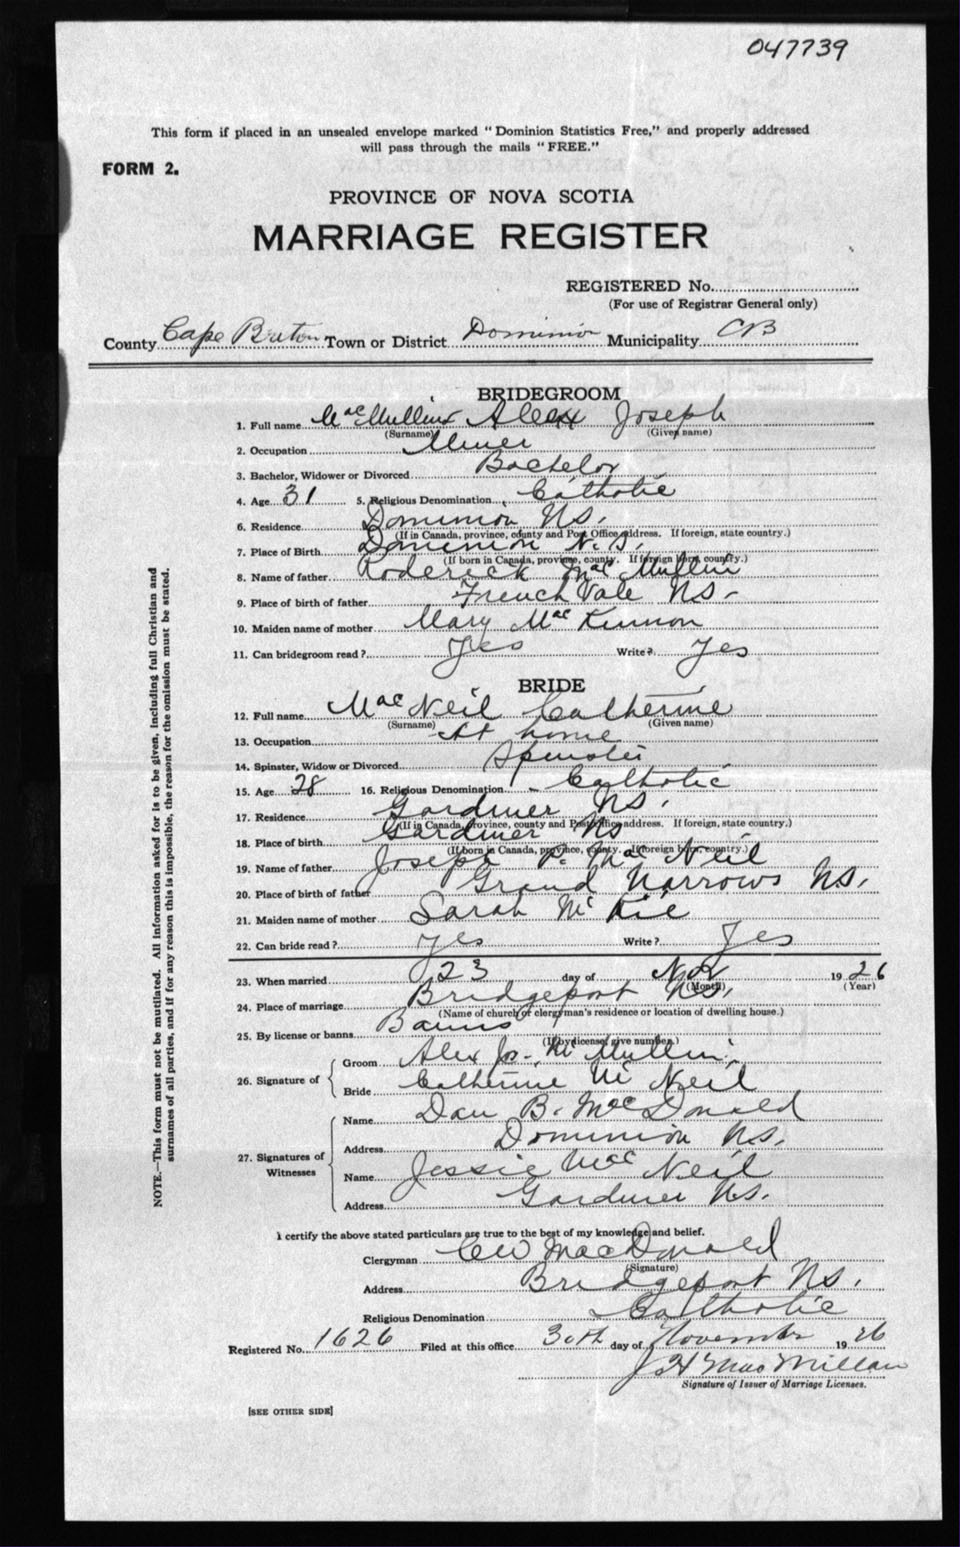 047739
This form if placed in an unsealed envelope marked "Dominion Statistics Free," and properly addressed
will pass through the mails "FREE."
FORM 2.
PROVINCE OF NOVA SCOTIA
MARRIAGE REGISTER
REGISTERED No.
(For use of Registrar General only)
County Cape Breton Town or District Dominion Municipality CB
BRIDEGROOM
1. Full name MacMullin Alex Joseph
(Surname) (Given name)
2. Occupation Miner
3. Bachelor, Widower or Divorced Bachelor
4. Age 31 5. Religious Denomination Catholic
6. Residence Dominion NS.
(If in Canada, province, county and Post Office address. If foreign, state country.)
7. Place of Birth Dominion N.S.
(If born in Canada, province, county. If foreign born, country.)
8. Name of father Roderick MacMullin
9. Place of birth of father French Vale NS.
10. Maiden name of mother Mary MacKinnon
11. Can bridegroom read? Yes Write? Yes
BRIDE
12. Full name MacNeil Catherine
(Surname) (Given name)
13. Occupation At home
14. Spinster, Widow or Divorced Spinster
15. Age 28 16. Religious Denomination Catholic
17. Residence Gardiner NS.
(If in Canada, province, county and Post Office address. If foreign, state country.)
18. Place of birth Gardiner NS
(If born in Canada, province, county. If foreign born, country.)
19. Name of father Joseph P. MacNeil
20. Place of birth of father Grand Narrows NS.
21. Maiden name of mother Sarah McKie
22. Can bride read? Yes Write? Yes
23. When married 23 day of Nov 1926
(Month) (Year)
24. Place of marriage Bridgeport NS.
(Name of church or clergyman's residence or location of dwelling house.)
25. By license or banns Banns
(If by license, give number.)
26. Signature of Groom Alex Jos. McMullin
Bride Catherine McNeil
27. Signatures of Witnesses Name Dan B. MacDonald
Address Dominion NS.
Name Jessie MacNeil
Address Gardiner NS.
I certify the above stated particulars are true to the best of my knowledge and belief.
Clergyman CW MacDonald
(Signature)
Address Bridgeport NS.
Religious Denomination Catholic
Registered No. 1626 Filed at this office 30th day of November 1926
J H MacMillan
Signature of Issuer of Marriage Licenses.
[SEE OTHER SIDE]
NOTE.—This form must not be mutilated. All information asked for is to be given, including full Christian and
surnames of all parties, and if for any reason this is impossible, the reason for the omission must be stated.